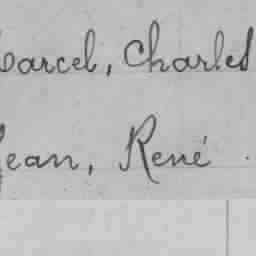 Marcel, Charles
Jean, René.